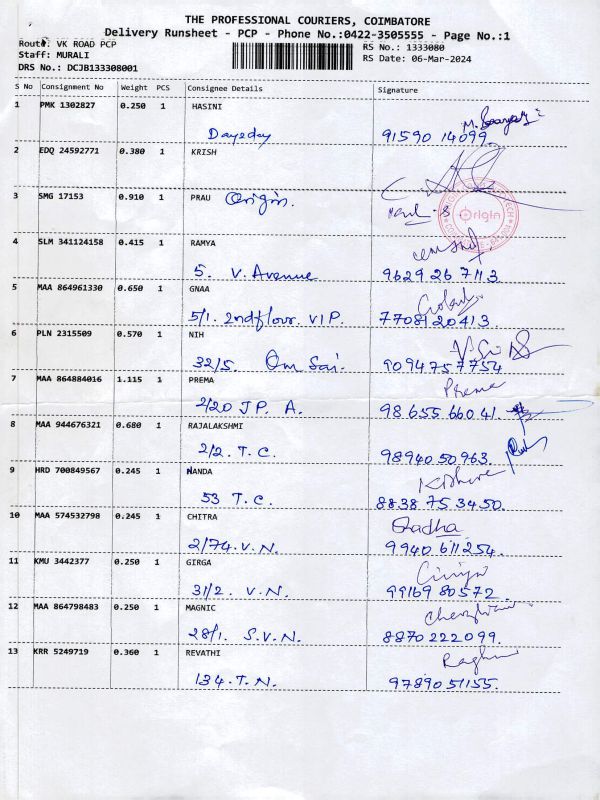 THE PROFESSIONAL COURIERS, COIMBATORE
Delivery Runsheet - PCP - Phone No.:0422-3505555 - Page No.:1
Route: VK ROAD PCP RS No.: 1333080
Staff: MURALI RS Date: 06-Mar-2024
DRS No.: DCJB133308001
S No Consignment No Weight PCS Consignee Details Signature
1 PMK 1302827 0.250 1 HASINI
Day2day 91590 14099.
2 EDQ 24592771 0.380 1 KRISH
3 SMG 17153 0.910 1 PRAU Origin.
Origin
4 SLM 341124158 0.415 1 RAMYA
5. V. Avenue 9629 267 713
5 MAA 864961330 0.650 1 GNAA
5/1. 2nd floor. VIP. 7708120413.
6 PLN 2315509 0.570 1 NIH
32/5. Om Sai. 9094757754
7 MAA 864884016 1.115 1 PREMA Prema
2/20 JP. A. 98 655 660 41.
8 MAA 944676321 0.680 1 RAJALAKSHMI
2/2. T.C. 9894050963.
9 HRD 700849567 0.245 1 NANDA
53 T.C. 8838 75 3450.
10 MAA 574532798 0.245 1 CHITRA Radha
2/74. V.N. 9940 611254.
11 KMU 3442377 0.250 1 GIRGA
31/2. V.N. 99169 80572.
12 MAA 864798483 0.250 1 MAGNIC
28/1. S.V.N. 8870222099.
13 KRR 5249719 0.360 1 REVATHI Raghu
134. T.N. 9789051155.